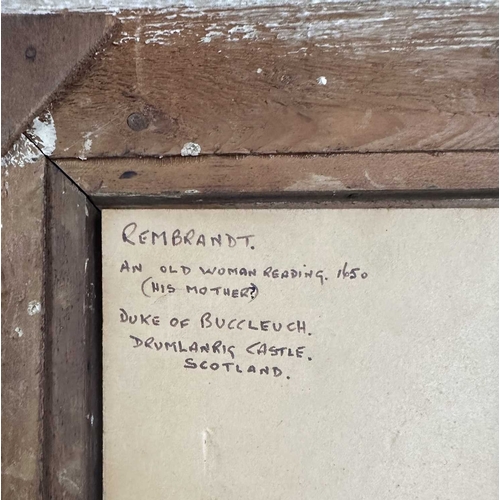 REMBRANDT.
AN OLD WOMAN READING. 1650
(HIS MOTHER?)
DUKE OF BUCCLEUCH.
DRUMLANRIG CASTLE.
SCOTLAND.